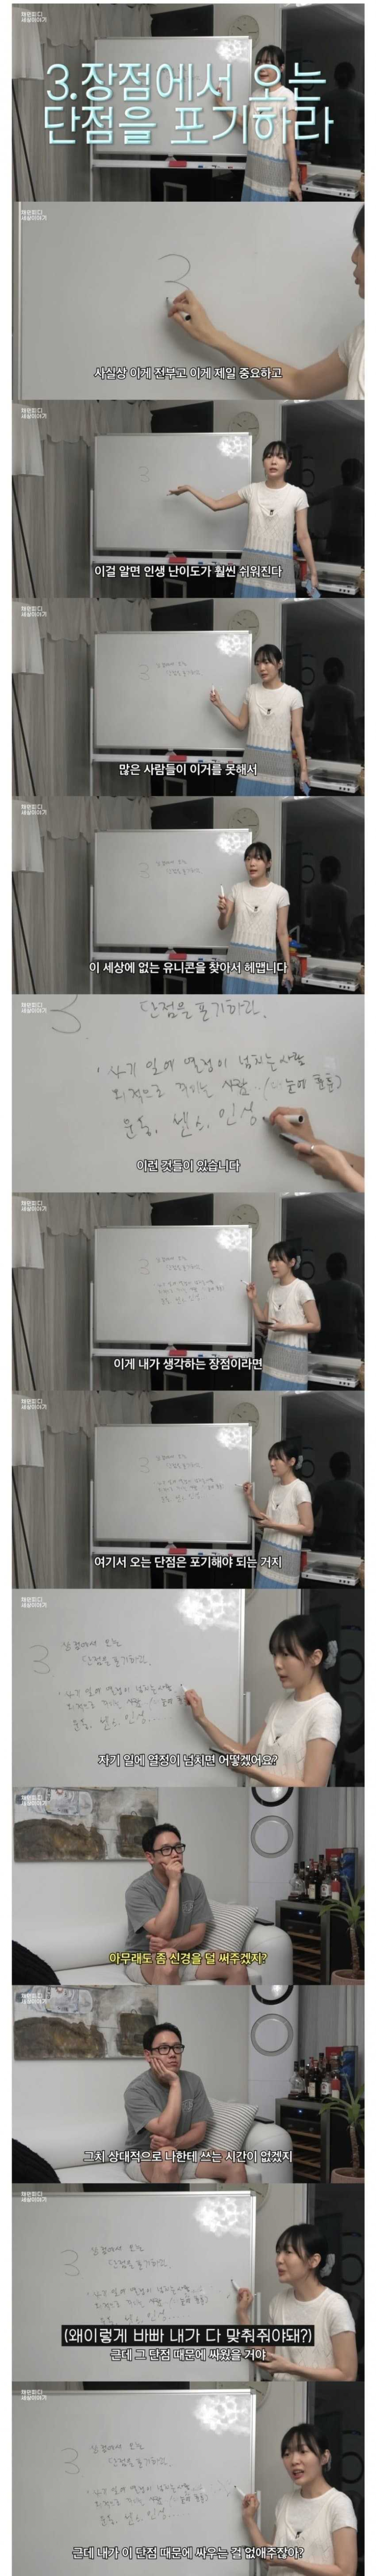 채은피디
세상이야기
3.장점에서 오는
단점을 포기하라
3
사실상 이게 전부고 이게 제일 중요하고
이걸 알면 인생 난이도가 훨씬 쉬워진다
많은 사람들이 이거를 못해서
이 세상에 없는 유니콘을 찾아서 헤맵니다
3.
단점을 포기하라.
자기 일에 열정이 넘치는 사람
외적으로 꾸미는 사람
운동, 패션, 인상
이런 것들이 있습니다
이게 내가 생각하는 장점이라면
여기서 오는 단점은 포기해야 되는 거지
3
장점에서 오는
단점을 포기하라.
자기 일에 열정이 넘치면 어떻겠어요?
아무래도 좀 신경을 덜 써주겠지?
그치 상대적으로 나한테 쓰는 시간이 없겠지
(왜이렇게 바빠 내가 다 맞춰줘야돼?)
근데 그 단점 때문에 싸웠을 거야
근데 내가 이 단점 때문에 싸우는 걸 없애주잖아?